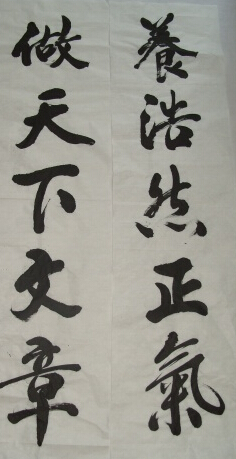 養浩然正氣
做天下文章